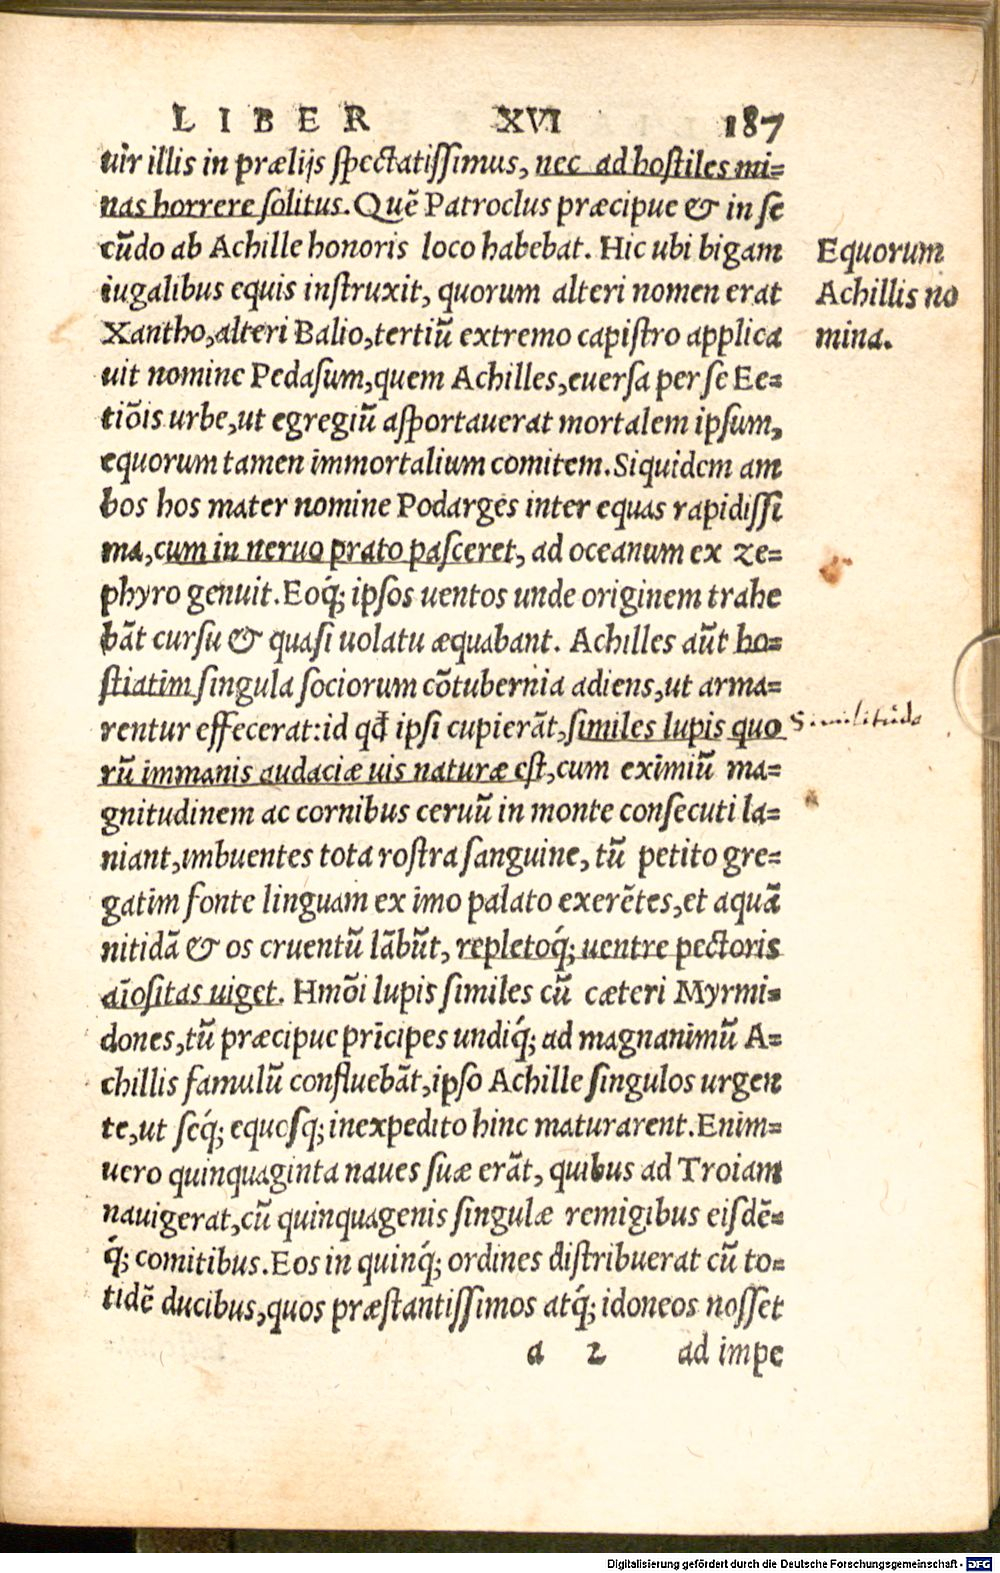 LIBER XVI 187
uir illis in prælijs spectatissimus, nec ad hostiles mi=
nas horrere solitus. Quē Patroclus præcipue & in se
cūdo ab Achille honoris loco habebat. Hic ubi bigam
iugalibus equis instruxit, quorum alteri nomen erat
Xantho, alteri Balio, tertiū extremo capistro applica
uit nomine Pedasum, quem Achilles, euersa per se Ee=
tiōis urbe, ut egregiū asportauerat mortalem ipsum,
equorum tamen immortalium comitem. Siquidem am
bos hos mater nomine Podarges inter equas rapidissi
ma, cum in neruo prato pasceret, ad oceanum ex ze=
phyro genuit. Eoq́; ipsos uentos unde originem trahe
bāt cursu & quasi uolatu æquabant. Achilles aūt ho=
stiatim singula sociorum cōtubernia adiens, ut arma=
rentur effecerat: id qđ ipsi cupierāt, similes lupis quo
rū immanis audaciæ uis naturæ est, cum eximiū ma=
gnitudinem ac cornibus ceruū in monte consecuti la=
niant, imbuentes tota rostra sanguine, tū petito gre=
gatim fonte linguam ex imo palato exerētes, et aquā
nitidā & os cruentū lābūt, repletoq́; uentre pectoris
aīositas uiget. Hmōi lupis similes cū cæteri Myrmi=
dones, tū præcipue prīcipes undiq́; ad magnanimū A=
chillis famulū confluebāt, ipso Achille singulos urgen
te, ut seq́; equosq; inexpedito hinc maturarent. Enim=
uero quinquaginta naues suæ erāt, quibus ad Troiam
nauigerat, cū quinquagenis singulæ remigibus eisdē=
q́; comitibus. Eos in quinq́; ordines distribuerat cū to=
tidē ducibus, quos præstantissimos atq́; idoneos nosset
a 2 ad impe
Equorum
Achillis no
mina.
Similitudo
Digitalisierung gefördert durch die Deutsche Forschungsgemeinschaft - DFG